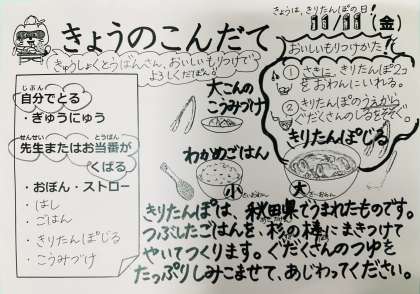 きょうは、きりたんぽの日！
11/11（金）
きょうのこんだて
きゅうしょくとうばんさん、おいしいもりつけで
よろしくだぽん。
じぶん
自分でとる
・ぎゅうにゅう
せんせい　とうばん
先生またはお当番が
くばる
・おぼん・ストロー
・はし
・ごはん
・きりたんぽじる
・こうみづけ
大こんの
こうみづけ
わかめごはん
小
おいしいもりつけかた！
① さきに、きりたんぽ2つ
をおわんにいれる。
② きりたんぽのうえから、
ぐだくさんのしるをそそぐ。
きりたんぽじる
大
きりたんぽは、秋田県でうまれたものです。
つぶしたごはんを、杉の棒にまきつけて
やいてつくります。ぐだくさんのつゆを
たっぷりしみこませて、あじわってください。